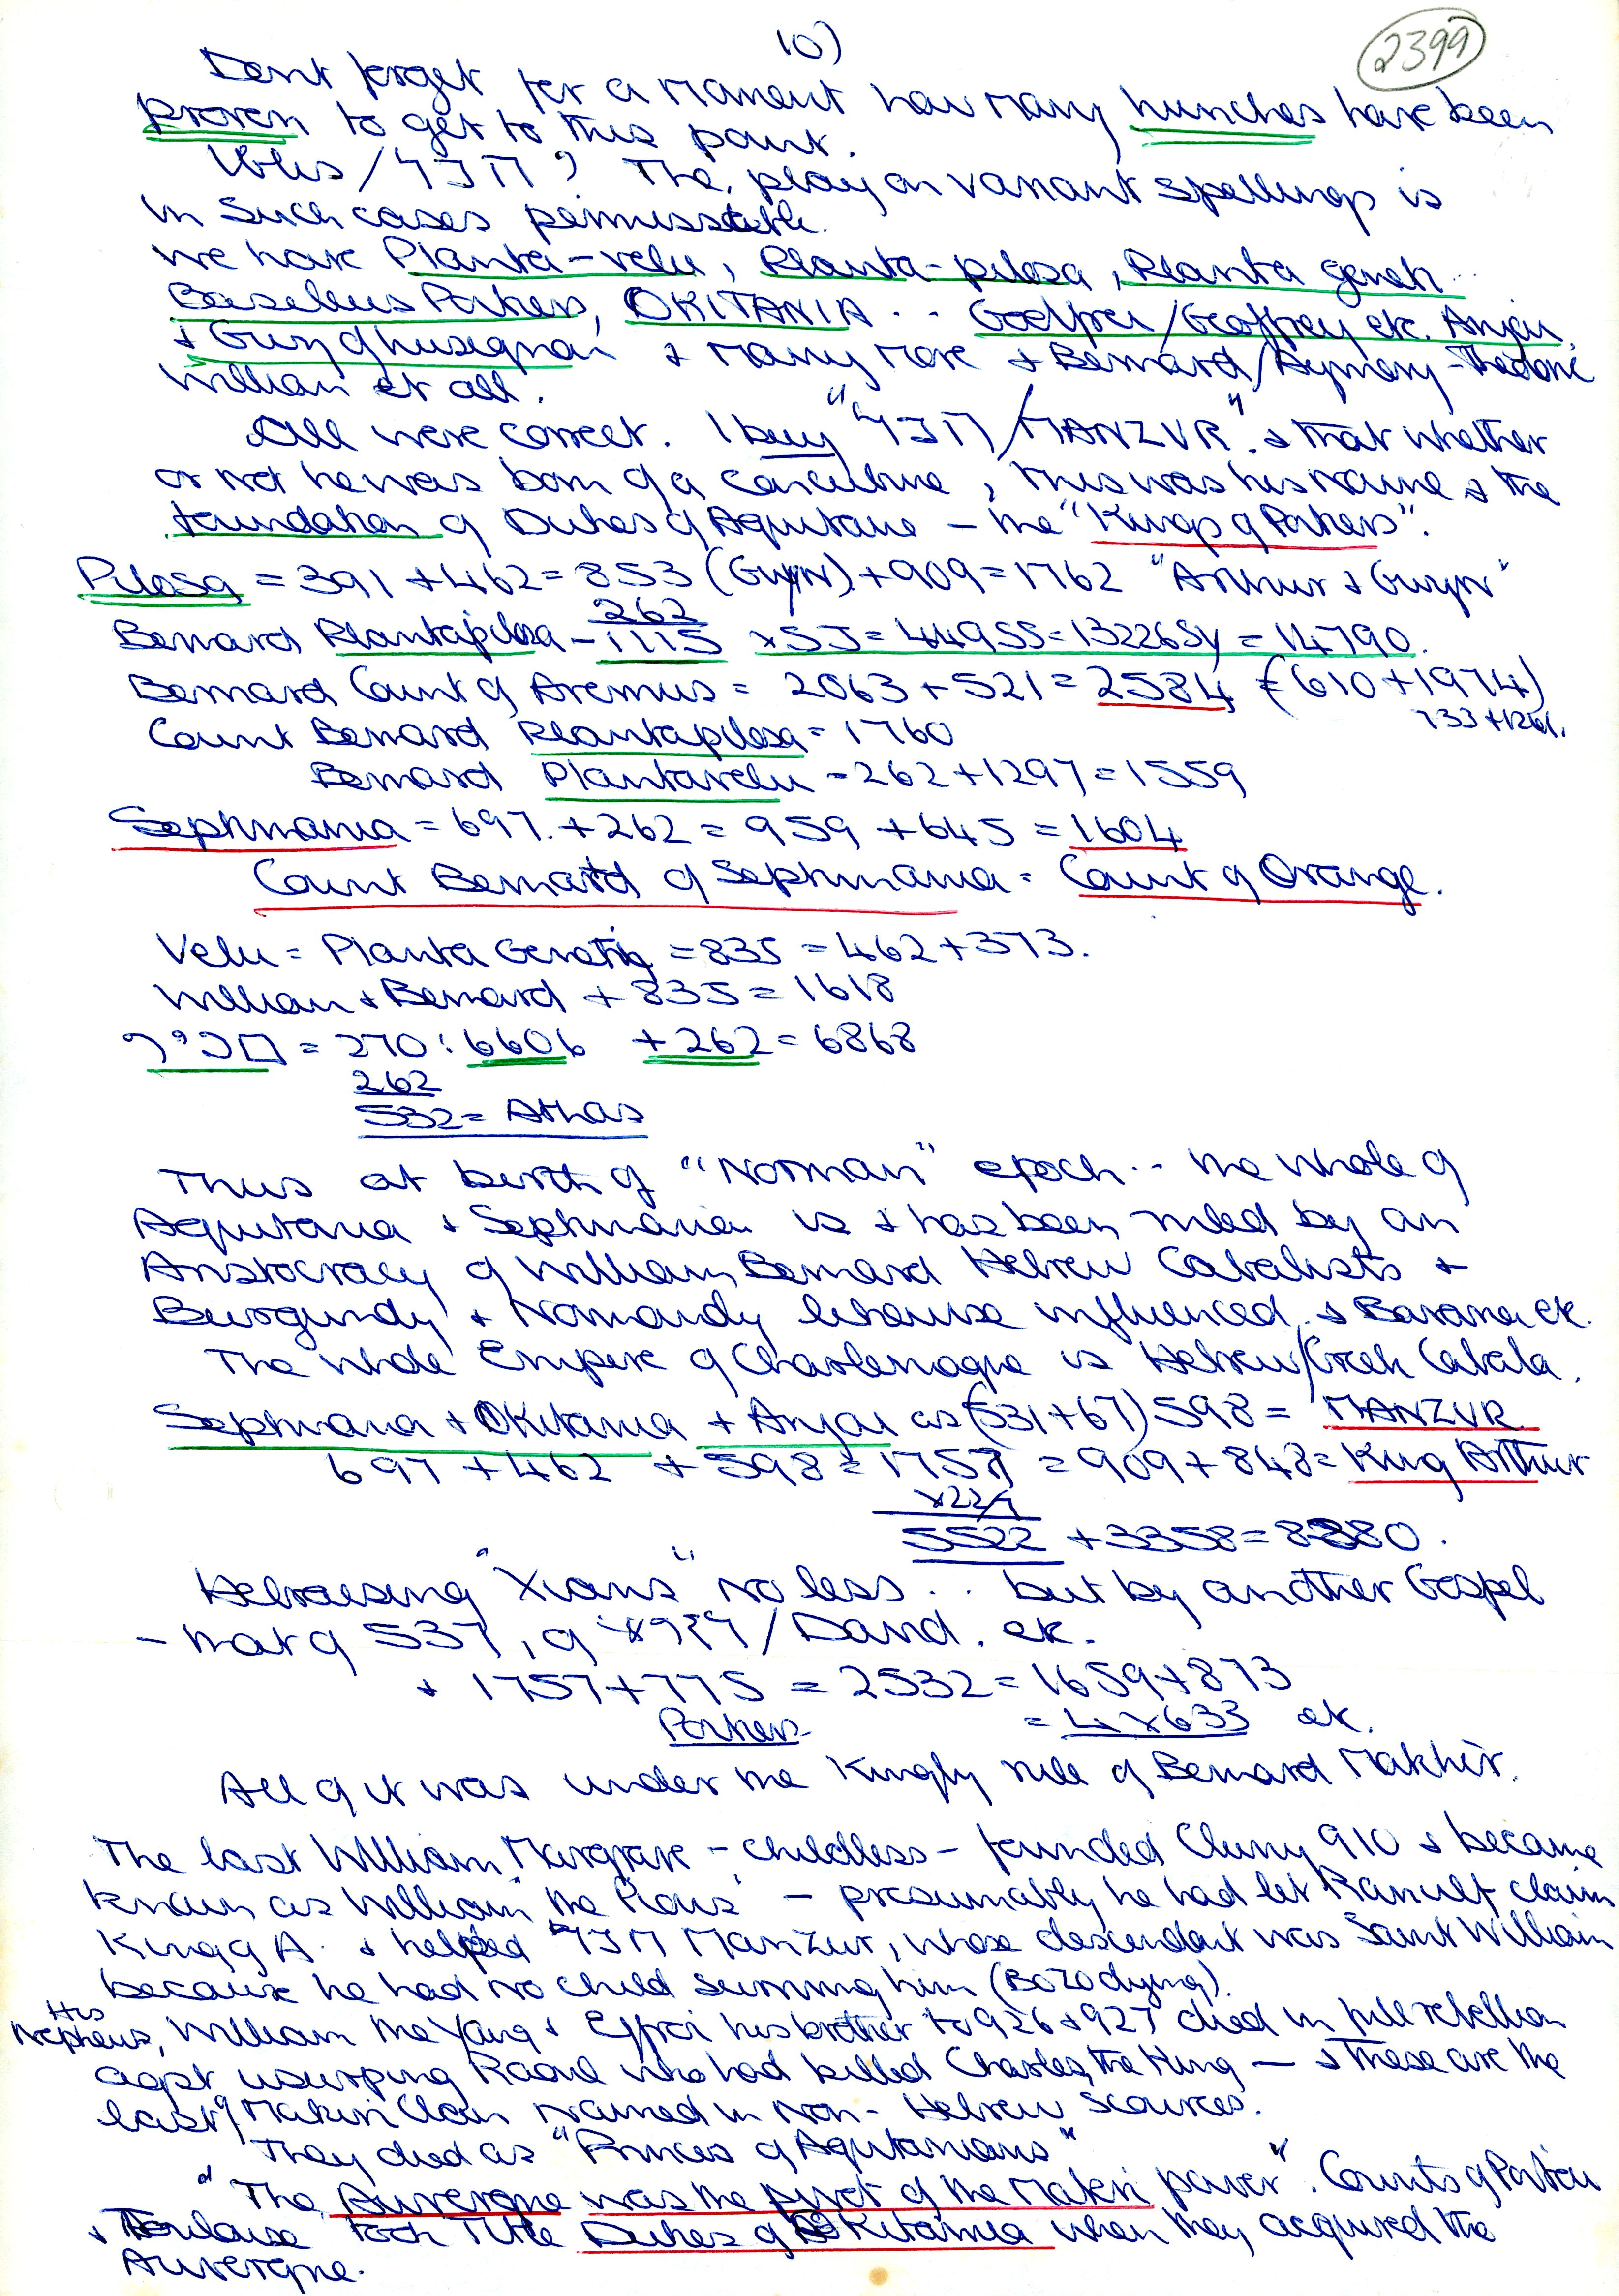 10)
2399
Dont forget for a moment how many hunches have been
proven to get to this point.
The play on variant spellings is
in such cases
we have Planta-velu, Planta-pilosa, Planta genet..
Basileus Poitiers, OKITANIA .. Godfrei/Geoffrey etc. Anjou,
+ Guy of Lusignan + many more + Bernard/Aymery-Thedoric
William et all.
All were correct. I buy MANZUR". + that whether
or not he was born of a concubine, this was his name & the
foundation of Dukes of Aquitane - the "Kings of Poitiers".
Pilosa = 391 + 462 = 853 (Gwyn) + 909 = 1762 "Arthur + Gwyn"
262
Bernard Plantapilosa - 1115
Bernard Count of = 2063 + 521 = 2584 (610 + 1974)
Count Bernard Plantapilosa = 1760
Bernard Plantavelu = 262 + 1297 = 1559
Septimania = 697. + 262 = 959 + 645 = 1604
Count Bernard of Septimania = Count of Orange.
Velu = Planta = 835 = 462 + 373.
William + Bernard + 835 = 1618
= 270 : 6606 + 262 = 6868
262
532 = Athas
Thus at birth of "Norman" epoch.. the whole of
Aquitania + Septimania is & has been ruled by an
Aristocracy of William, Bernard Hebrew Cabalists +
Burgundy + Normandy likewise influenced + Bavaria etc.
The whole Empire of Charlemagne is Hebrew/Greek Cabala.
Septmania + OKitania + Anjou as (531+67) 598 = MANZUR
697 + 462 + 598 = 1757 = 909 + 848 = King Arthur
x22/7
5522 + 3358 = 8880.
Hebraising "Xians" no less .. but by another Gospel
- that of 537, of /David. etc.
+ 1757 + 775 = 2532 = 1659 + 873
Poitiers = 4 x 633 etc.
All of it was under the Kingly rule of Bernard Makhir.
The last William Margrave - childless - founded Cluny 910 & became
known as William "the Pious" - presumably he had let Ranulf claim
King of A. & helped Manzur, whose descendant was Saint William
because he had no child surviving him (Bozo dying).
His
Nephews, William the Young + Effroi his brother to 926 + 927 died in full rebellion
agst usurping Raoul who had killed Charles, the King — & these are the
last of Makiri Clan named in Non-Hebrew Scources.
They died as "Princes of Aquitanians"
"The Auvergne was the pivot of the Makiri power". Counts of Poitiers
+ Toulouse took Title Dukes of OKitania when they acquired the
Auvergne.